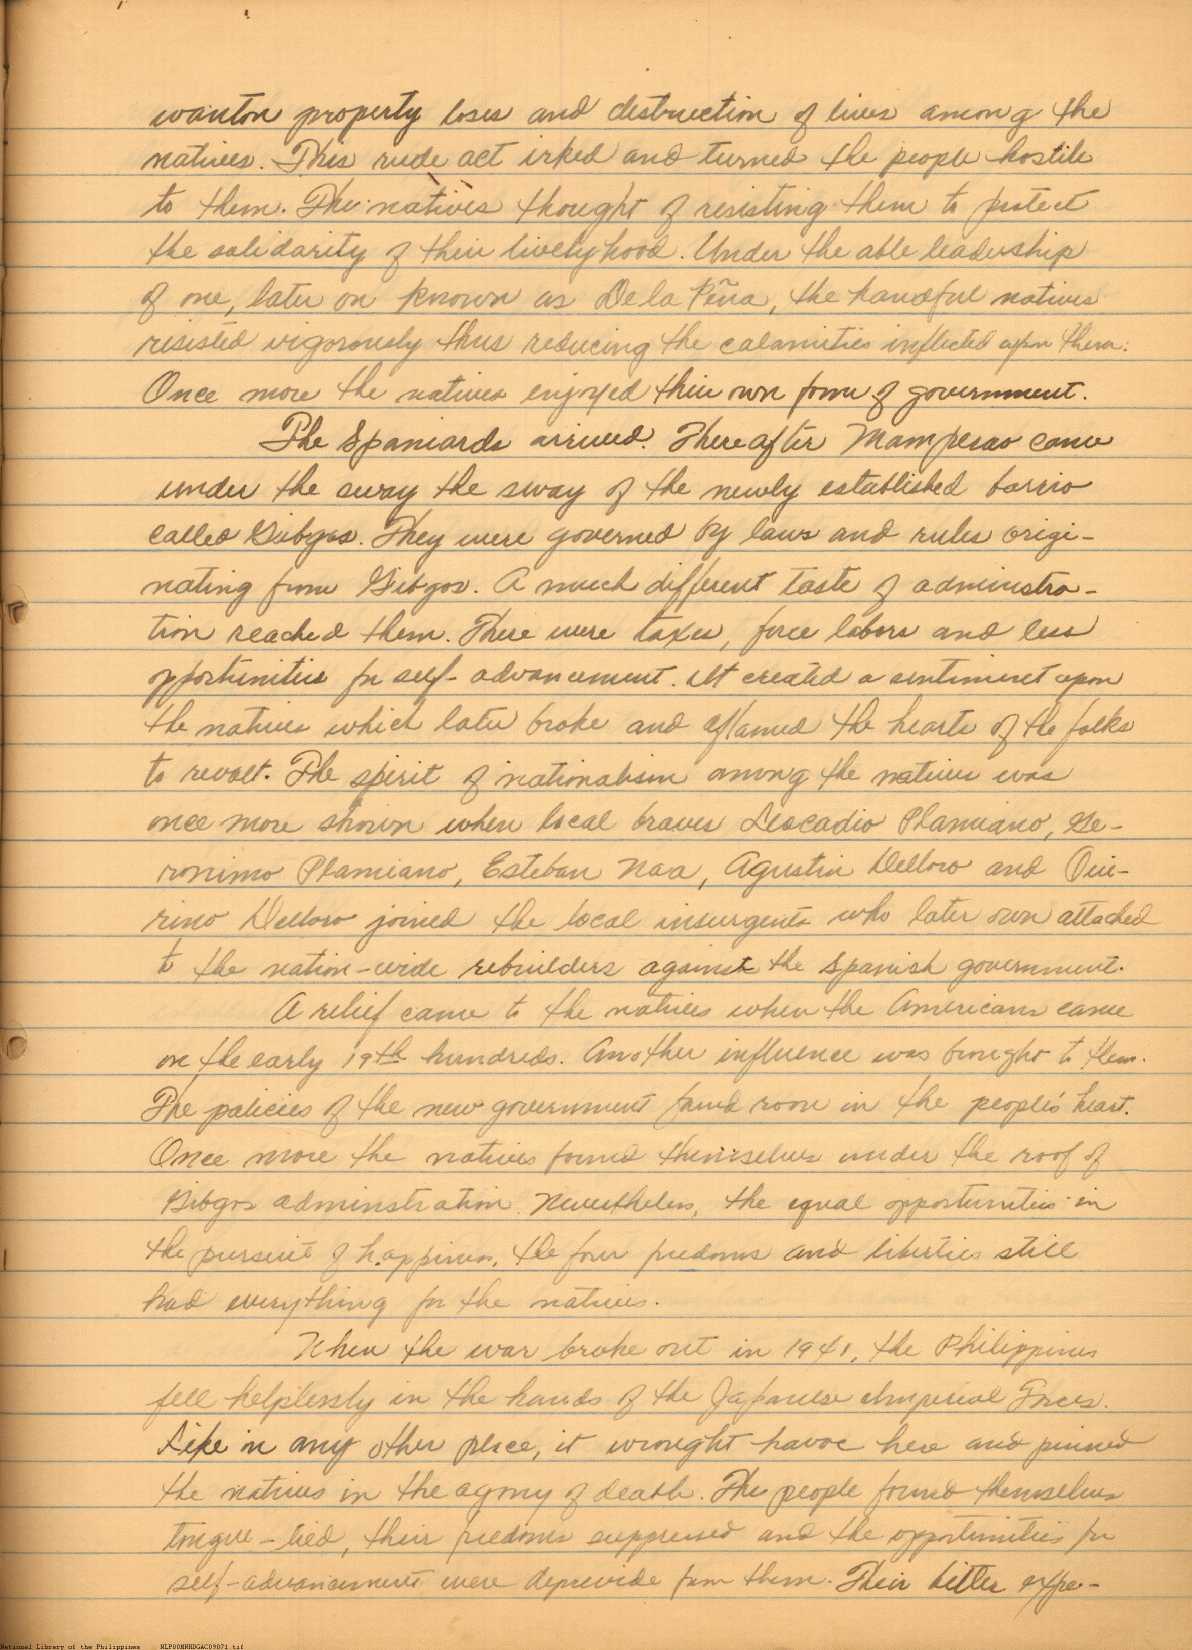 wanton property loses and destruction of lives among the
natives. This rude act irked and turned the people hostile
to them. The natives thought of resisting them to protect
the solidarity of their livelyhood. Under the able leadership
of one, later on known as De la Peña, the handful natives
resisted vigorously thus reducing the calamities inflected upon them.
Once more the natives enjoyed their own form of government.
The Spaniards arrived. Thereafter Mampesao came
under the sway the sway of the newly established barrio
called Gibgos. They were governed by laws and rules origi-
nating from Gibgos. A much different taste of adminstra-
tion reached them. There were taxes, force labors and less
opportunities for self-advancement. It created a sentiment upon
the natives which later broke and aflamed the hearts of the folks
to revolt. The spirit of nationalism among the natives was
once more shown when local braves Leocadio Plamiano, Ge-
ronimo Plamiano, Esteban Naa, Agustin Delloro and Qui-
rino Delloro joined the local insurgents who later own attached
to the nation-wide rebuilders against the Spanish government.
A relief came to the natives when the Americans came
on the early 19th hundreds. Another influence was brought to them.
The policies of the new government found room in the people's heart.
Once more the natives found themselves under the roof of
Gibgos adminstration. Nevertheless, the equal opportunities in
the pursuit of happiness, the four freedoms and liberties still
had everything for the natives.
When the war broke out in 1941, the Philippines
fell helplessly in the hands of the Japanese Imperial Forces.
Like in any other place, it wrought havoc here and pinned
the natives in the agony of death. The people found themselves
tongue-tied, their freedoms suppressed and the opportunities for
self-advancements were deprevide from them. Their bitter expe-
National Library of the Philippines NLP00MNHDGAC09071.tif